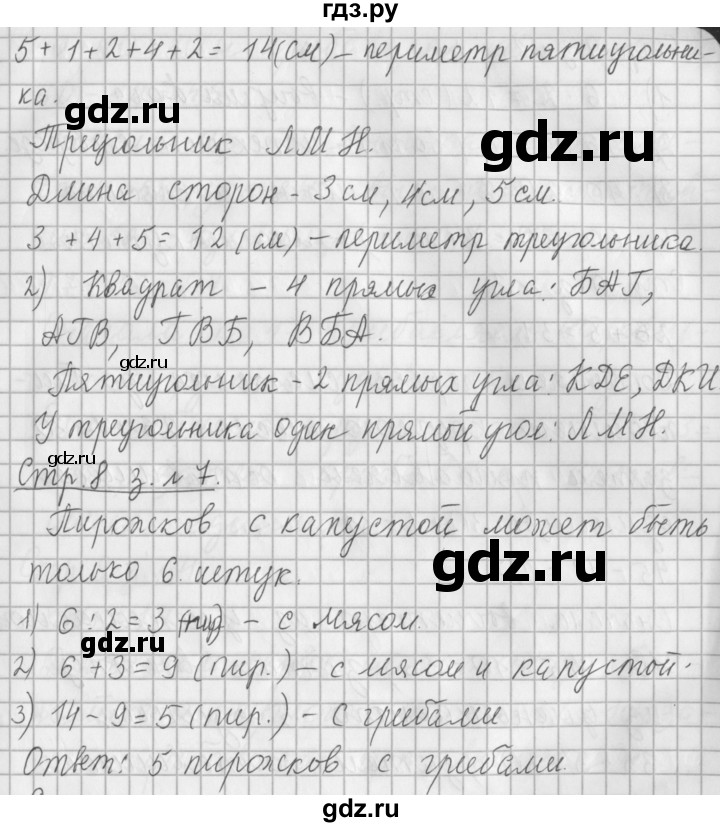 гдз.ру
5 + 1 + 2 + 4 + 2 = 14(см) – периметр пятиугольни-
ка.
gdz.ru
gdz.ru
Треугольник ЛМН.
Длина сторон - 3 см, 4 см, 5 см.
3 + 4 + 5 = 12 (см) – периметр треугольника.
2) Квадрат – 4 прямых угла: БАГ,
АГВ, ГВБ, ВБА.
gdz.ru
Пятиугольник - 2 прямых угла: КДЕ, ДКИ
У треугольника один прямой угол: ЛМН.
gdz.ru
Стр. 8 з. № 7.
Пирожков с капустой может быть
только 6 штук.
gdz.ru
1) 6 : 2 = 3 (пир) – с мясом.
gdz.ru
2) 6 + 3 = 9 (пир.) – с мясом и капустой.
3) 14 – 9 = 5 (пир.) – с грибами
Ответ: 5 пирожков с грибами.
gdz.ru